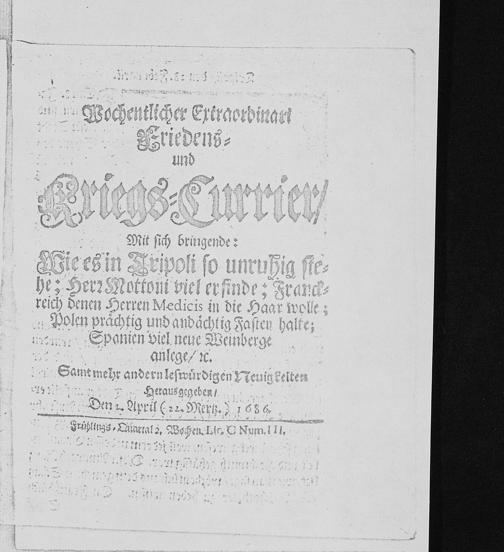 Wochentlicher Extraordinari
Friedens-
und
Kriegs-Currier/
Mit sich bringende:
Wie es in Tripoli so unruhig ste-
he; Herr Mottoni viel erfinde; Franck-
reich denen Herren Medicis in die Haar wolle;
Polen prächtig und andächtig Fasten halte;
Spanien viel neue Weinberge
anlege/ ꝛc.
Samt mehr andern leswürdigen Neuigkeiten
Herausgegeben/
Den 1. April (22. Mertz.) 1686.
Frühlings-Quartal 2. Wochen. Lit. C Num. III.